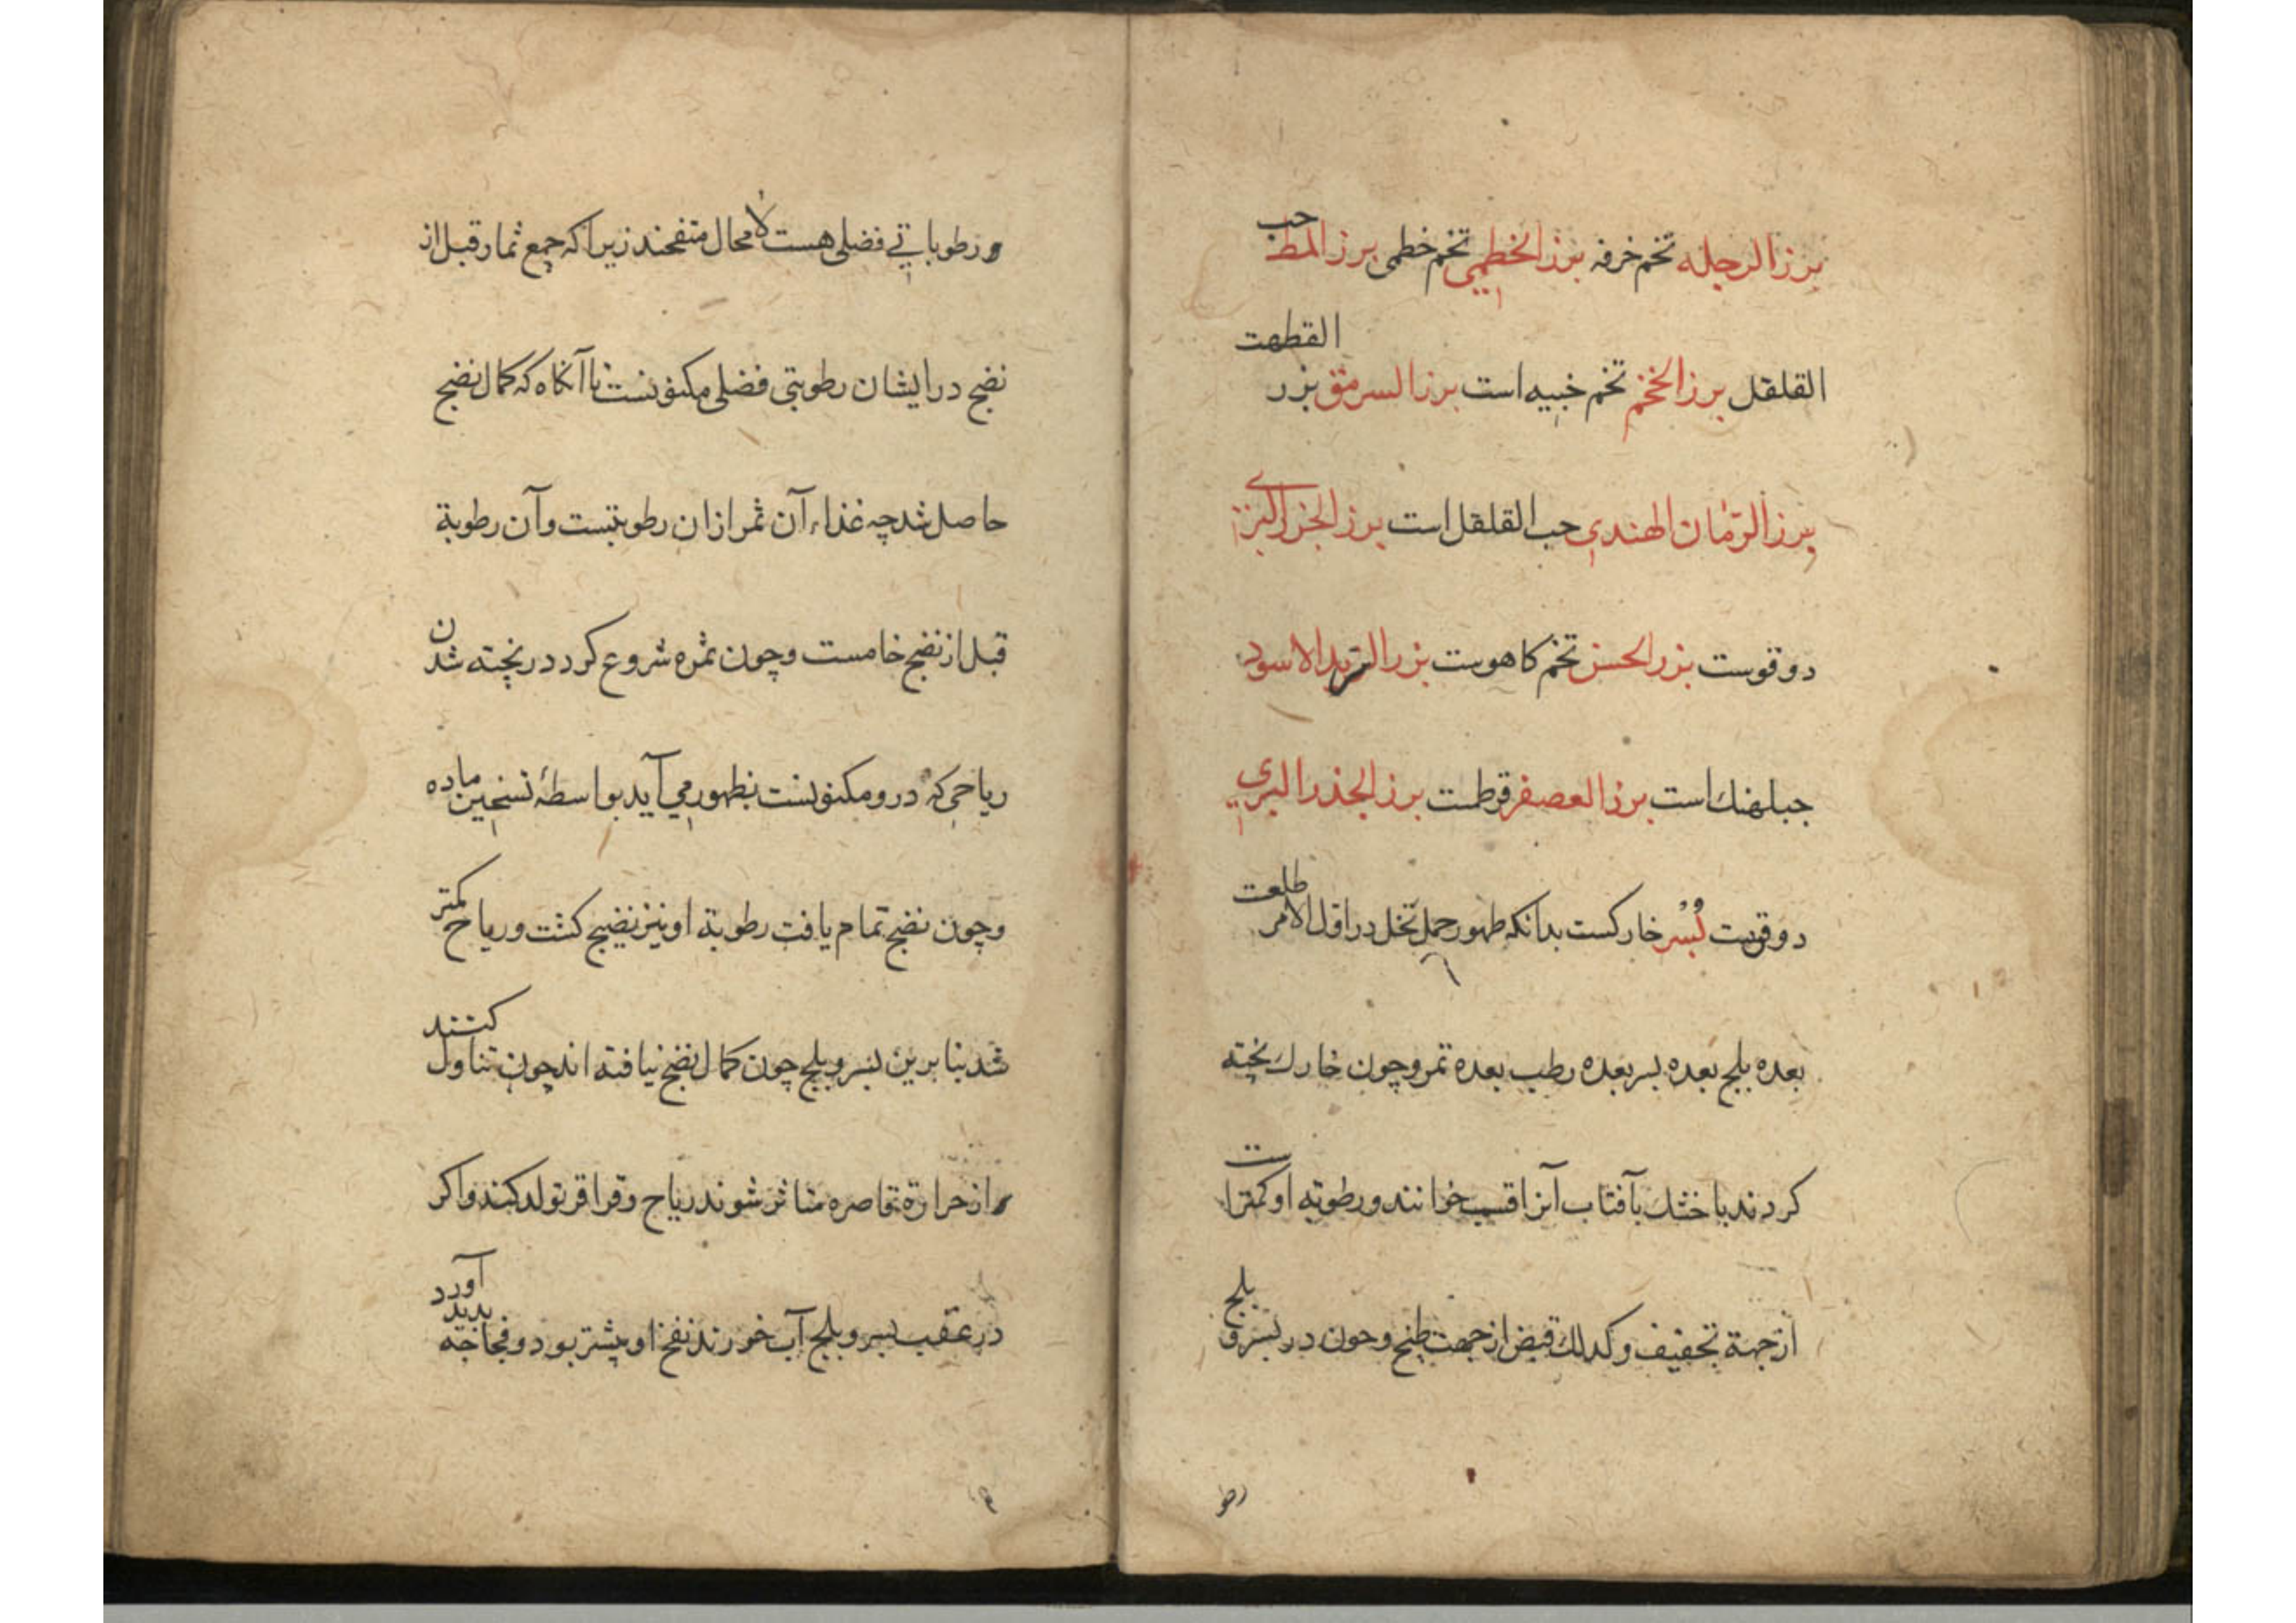 بزر الرجله تخم خرفه بزر الخطمي تخم خطمی بزر المط حب
القلقل بزر الخخم تخم خبیه است بزر السرمق بزر القطهت
بزر الرمان الهندي حب القلقل است بزر الجزر البری
دوقوست بزر الخس تخم کاهوست بزر التربد الاسود
جبلهنك است بزر العصفر قرطمت بزر الجذر البري
دوقوست بُسر خارکست بدانکه ظهور حمل نخل در اول الامر طلعت
بعده بلح بعده بسر بعده رطب بعده تمر و چون خارك پخته
کردند یا خشك بآفتاب آنرا قسب خوانند و رطوبه او کمتر است
از جهة تجفیف و کذلك قبض از جهت طبخ و چون در بسر و بلح
رطو
و رطوباتی فضلی هست لا محال منفخند زیرا که جمع ثمار قبل از
نضج در ایشان رطوبتی فضلی مکنونست تا آنکاه که کمال نضج
حاصل شد چه غذاء آن ثمر از ان رطوبتست و آن رطوبة
قبل از نضج خامست و چون ثمره شروع کرد در پخته شدن
ریاحی که درو مکنونست بظهور می آید بواسطهٔ تسخین ماده
و چون نضج تمام یافت رطوبة او نیز نضیج کشت و ریاح کمتر
شد بنا برین بسر و بلح چون کمال نضج نیافته اند چون تناول کنند
و از حرارة قاصره متاثر شوند ریاح و قراقر تولد کنند و اکر
در عقب بسر و بلح آب خورند نفخ او بیشتر بود و فجاجة پدید آورد